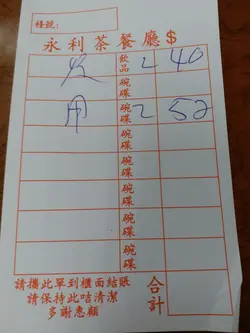 檯號：
永利茶餐廳$
飲品 2 40
碗碟 2 52
碗碟
碗碟
碗碟
碗碟
碗碟
請攜此單到櫃面結賬
請保持此咭清潔
多謝惠顧
合計